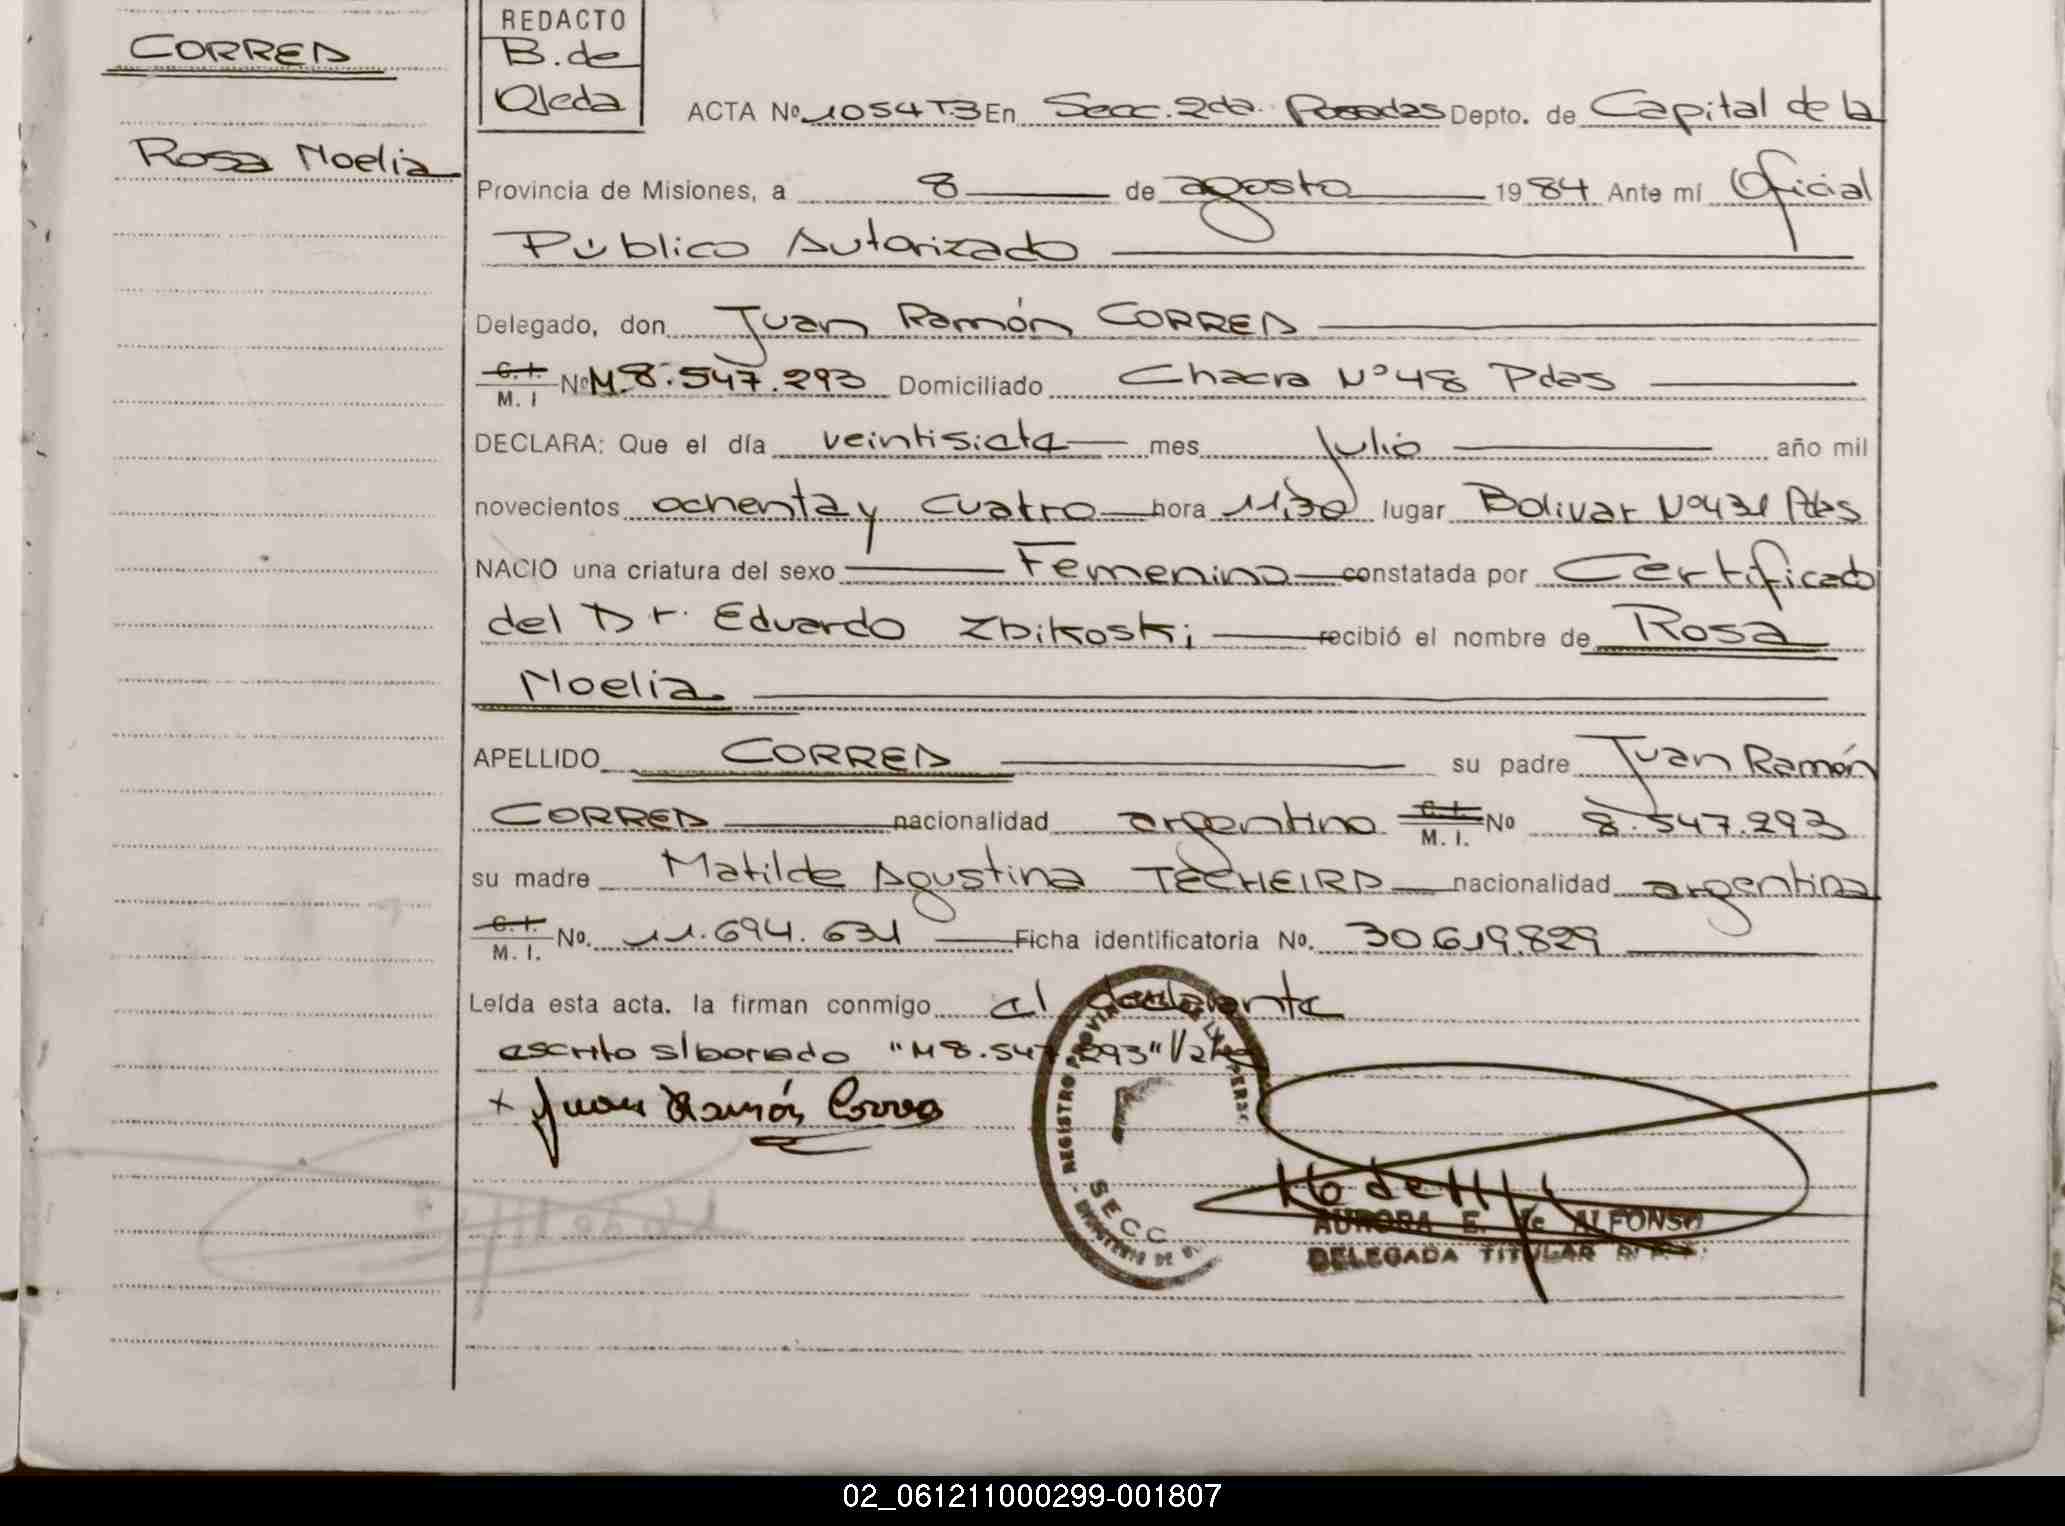 CORREA
Rosa Noelia
REDACTO
B. de
Ojeda
ACTA Nº 1054 T3 En Secc. 2da. Posadas Depto. de Capital de la
Provincia de Misiones, a 8 de agosto 1984 Ante mí Oficial
Público Autorizado
Delegado, don Juan Ramón CORREA
C. I. M. I Nº M.8.547.293 Domiciliado Chacra Nº 48 Pdas
DECLARA: Que el día veintisiete mes julio año mil
novecientos ochenta y cuatro hora 11,30 lugar Bolivar Nº 431 Pdas
NACIO una criatura del sexo Femenino constatada por Certificado
del Dr. Eduardo Zbikoski recibió el nombre de Rosa
Noelia
APELLIDO CORREA su padre Juan Ramón
CORREA nacionalidad argentino C. I. M. I. Nº 8.547.293
su madre Matilde Agustina TECHEIRA nacionalidad argentina
C. I. M. I. Nº. 11.694.631 Ficha identificatoria Nº. 30.619.829
Leída esta acta, la firman conmigo el declarante
escrito s/borrado "M8.547.293" Vale
+ Juan Ramón Correa
REGISTRO PROVINCIAL DE LAS PERS.
SECC
MINISTERIO DE
AURORA E. de ALFONSO
DELEGADA TITULAR R. P. P.
02_061211000299-001807